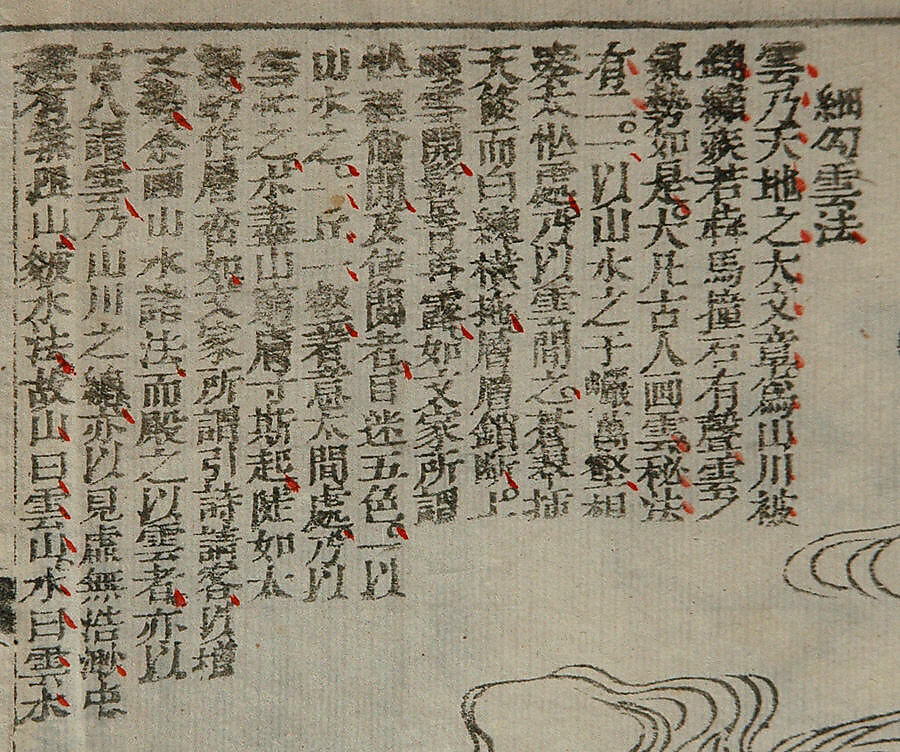 細勾雲法
雲乃天地之大文章為山川被
錦繡疾若犇馬撞石有聲雲之
氣勢如是大凡古人画雲秘法
有二一以山水之千巖萬壑相
湊太忙處乃以雲間之蒼翠插
天倐而白練橫拖層層鎖斷上
嶺雲開髻青再露如文家所謂
忙裏偷閒及使閱者目迷五色一以
山水之一丘一壑著意太間處乃以
雲忙之水盡山窮層寸斯起陡如大
作層巒如文家所謂引詩請客以增
文勢余画山水諸法而殿之以雲者亦以
古人謂雲乃山川之總亦以見虛無浩渺中
藏有無限山皴水法故山曰雲山水曰雲水